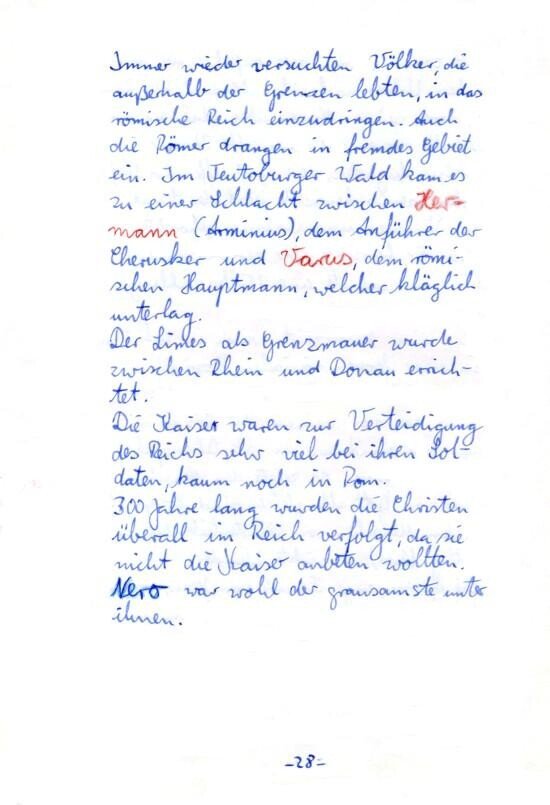 Immer wieder versuchten Völker, die
außerhalb der Grenzen lebten, in das
römische Reich einzudringen. Auch
die Römer drangen in fremdes Gebiet
ein. Im Teutoburger Wald kam es
zu einer Schlacht zwischen Her-
mann (Arminius), dem Anführer der
Cherusker und Varus, dem römi-
schen Hauptmann, welcher kläglich
unterlag.
Der Limes als Grenzmauer wurde
zwischen Rhein und Donau errich-
tet.
Die Kaiser waren zur Verteidigung
des Reichs sehr viel bei ihren Sol-
daten, kaum noch in Rom.
300 Jahre lang wurden die Christen
überall im Reich verfolgt, da sie
nicht die Kaiser anbeten wollten.
Nero war wohl der grausamste unter
ihnen.
-28-